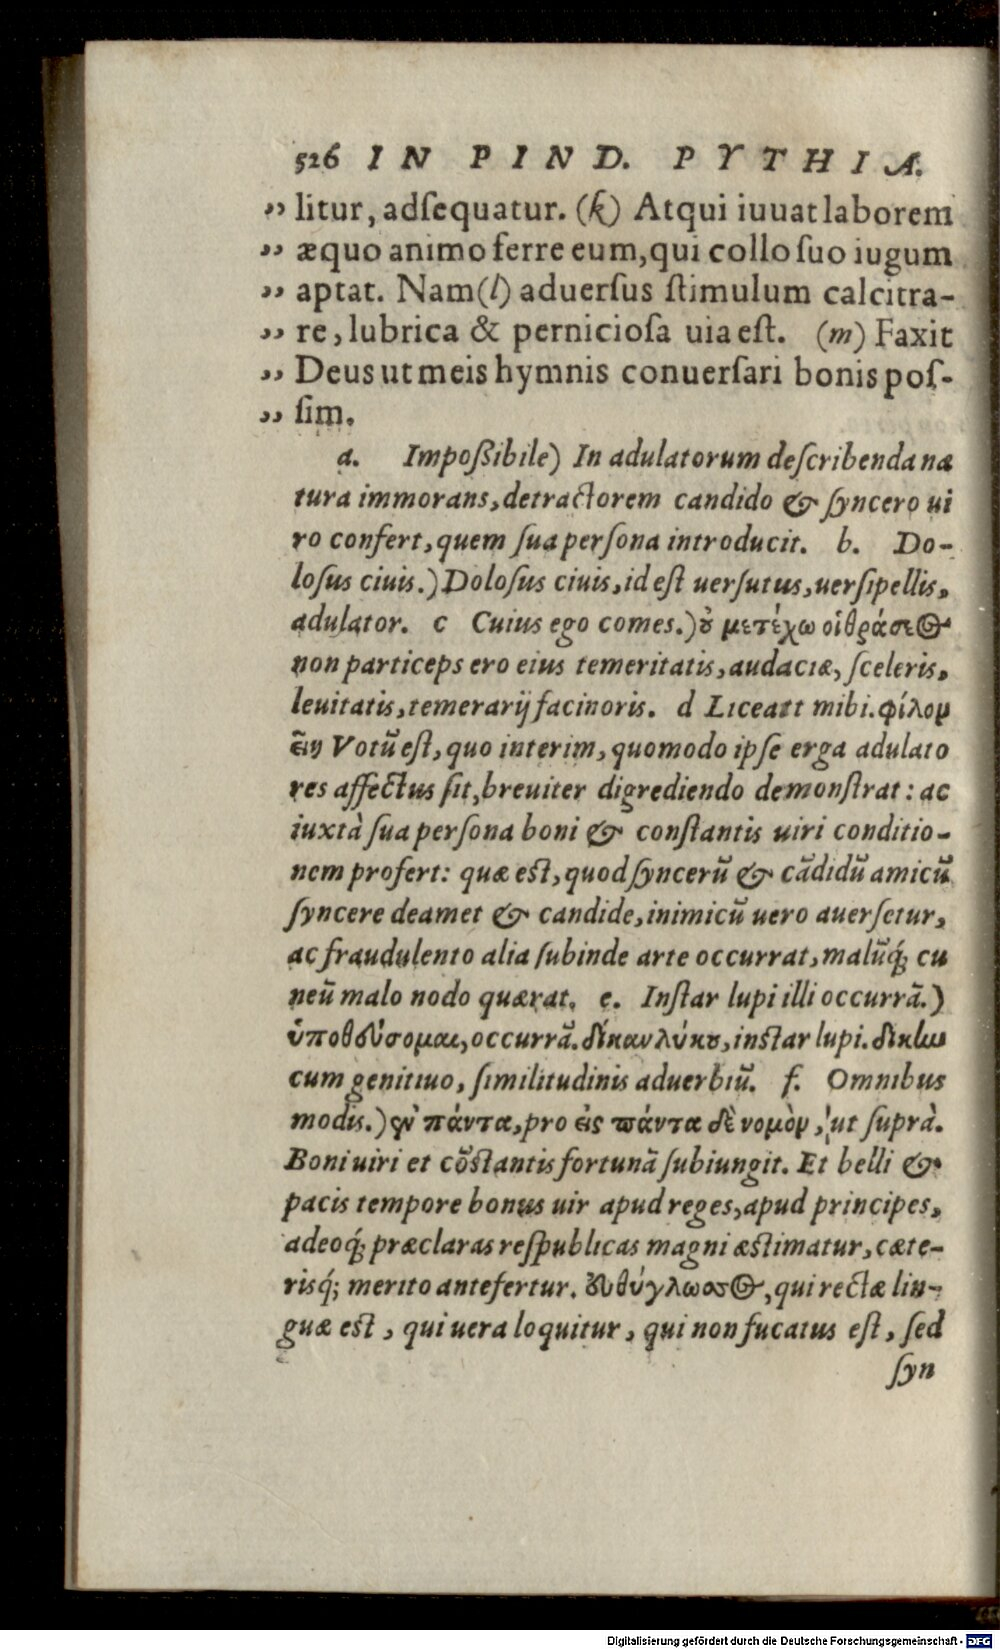 526 IN PIND. PYTHIA.
„ litur, adsequatur. (k) Atqui iuuat laborem
„ æquo animo ferre eum, qui collo suo iugum
„ aptat. Nam (l) aduersus stimulum calcitra-
„ re, lubrica & perniciosa uia est. (m) Faxit
„ Deus ut meis hymnis conuersari bonis pos-
„ sim.
a. Impoßibile) In adulatorum describenda na
tura immorans, detractorem candido & syncero ui
ro confert, quem sua persona introducit. b. Do-
losus ciuis.) Dolosus ciuis, id est uersutus, uersipellis,
adulator. c Cuius ego comes.) ȣ̓ μετέχω οἱ θράσεος
non particeps ero eius temeritatis, audaciæ, sceleris,
leuitatis, temerarij facinoris. d Liceatt mihi. φίλον
εἴη Votũ est, quo interim, quomodo ipse erga adulato
res affectus sit, breuiter digrediendo demonstrat: ac
iuxtà sua persona boni & constantis uiri conditio-
nem profert: quæ est, quod syncerũ & cãdidũ amicũ
syncere deamet & candide, inimicũ uero auersetur,
ac fraudulento alia subinde arte occurrat, malũq́; cu
neũ malo nodo quærat. e. Instar lupi illi occurrã.)
ὑποθεύσομαι, occurrã. δίκαν λύκȣ, instar lupi. δίκην
cum genitiuo, similitudinis aduerbiũ. f. Omnibus
modis.) ἐν πάντα, pro εἰς πάντα δὲ νομὸν, ut suprà.
Boni uiri et cõstantis fortunã subiungit. Et belli &
pacis tempore bonus uir apud reges, apud principes,
adeoq́; præclaras respublicas magni æstimatur, cæte-
risq́; merito antefertur. εὐθύγλωσσος, qui rectæ lin-
guæ est, qui uera loquitur, qui non fucatus est, sed
syn
Digitalisierung gefördert durch die Deutsche Forschungsgemeinschaft - DFG